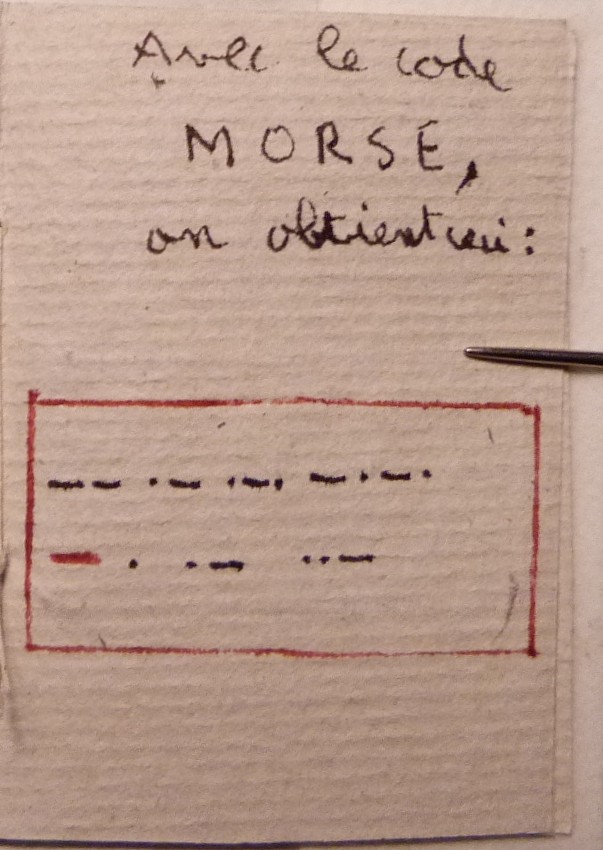 Avec le code
MORSE,
on obtient ceci :
-- .- .-. -.-.
- . .- ..-